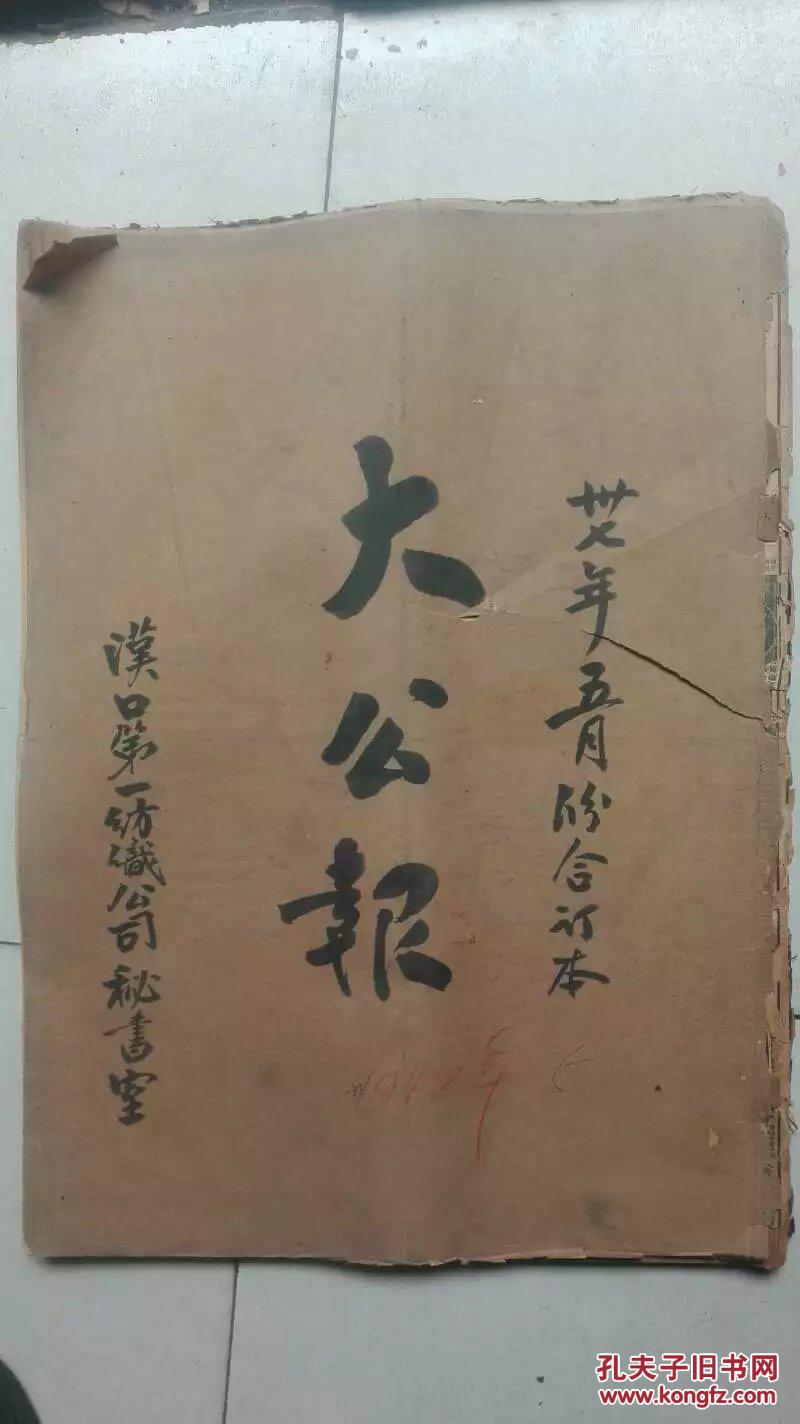 卅七年五月份合订本
大公報
漢口第一紡織公司秘書室
1948年5
孔夫子旧书网
www.kongfz.com